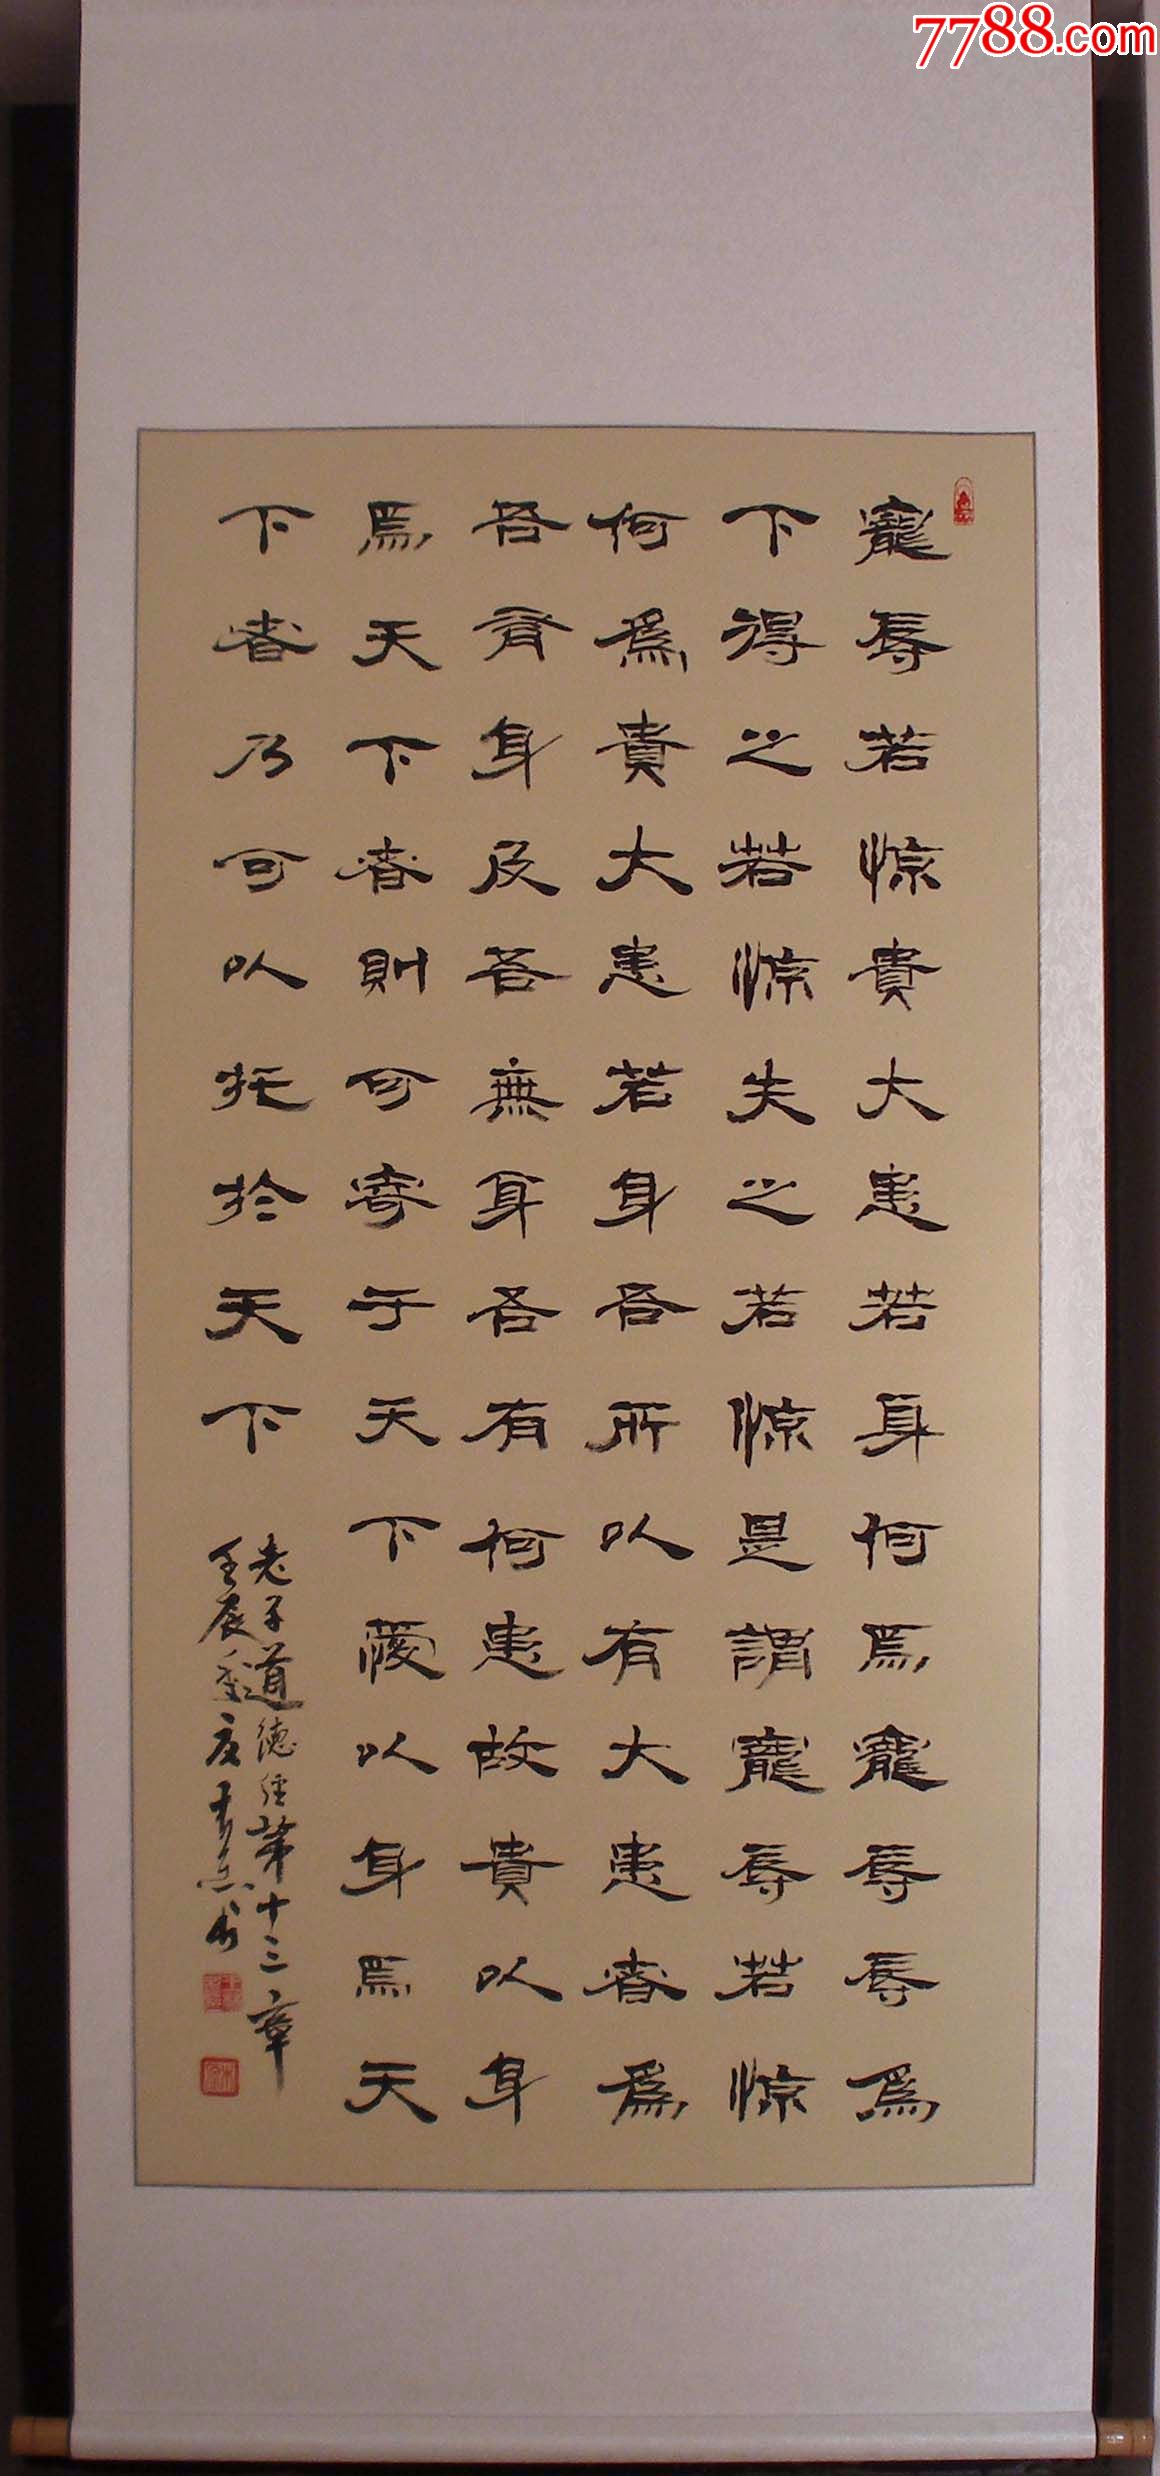 7788.com
寵辱若惊貴大患若身何為寵辱辱為
下得之若惊失之若惊是謂寵辱若惊
何為貴大患若身吾所以有大患者為
吾有身及吾無身吾有何患故貴以身
為天下者則可寄于天下愛以身為天
下者乃可以托於天下
老子道德經第十三章
壬辰季夏